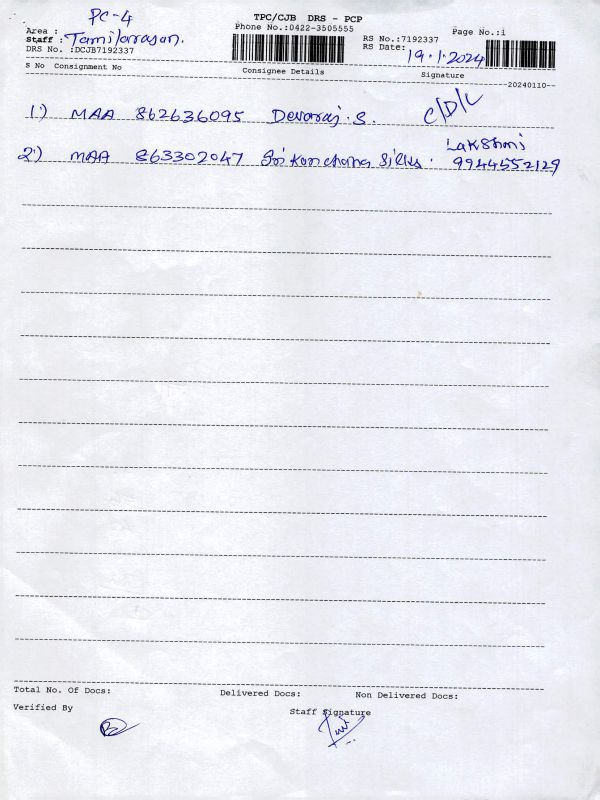 TPC/CJB DRS - PCP
Phone No.:0422-3505555
PC-4
Area :
Staff : Tamilarasan.
DRS No. :DCJB7192337
RS No.:7192337
Page No.:1
RS Date: 19.1.2024
S No Consignment No Consignee Details Signature
--20240110--
1) MAA 862636095 Devaraj.S. C/D/L
2) MAA 863302047 Sri Kanchana Silks. Lakshmi
9944552129
Total No. Of Docs: Delivered Docs: Non Delivered Docs:
Verified By Staff Signature